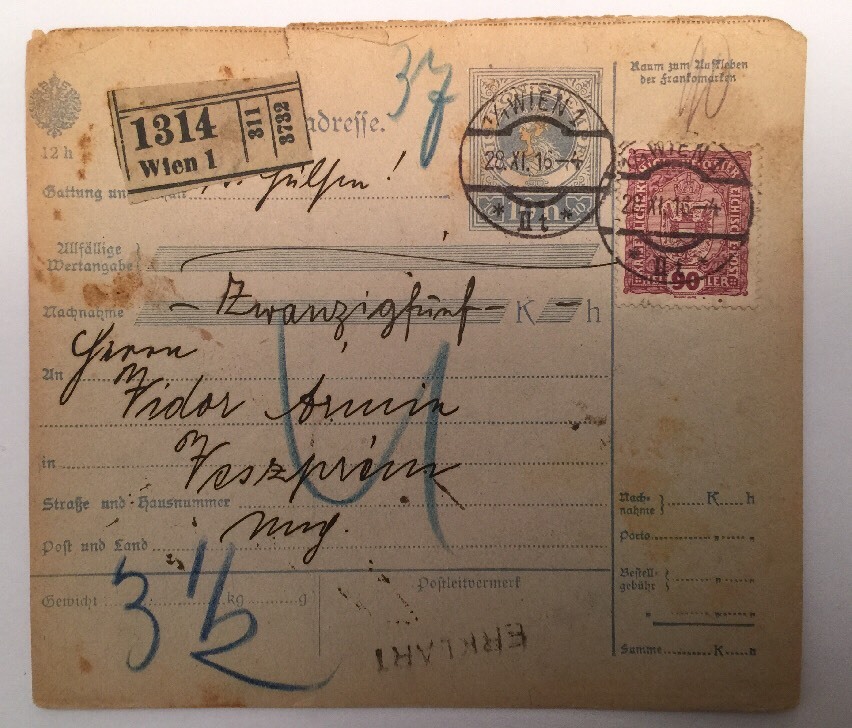 37
Raum zum Aufkleben
der Frankomarken
1314
Wien 1
311
3732
adresse.
12 h
WIEN 1
28.XI.16-4
* II t *
10 h
WIEN 1
28.XI.16-4
* II t *
90
Gattung un
Hülsen!
Allfällige
Wertangabe
Nachnahme – Zwanzigfünf – K – h
Herrn
An
Vidor Armin
in Veszprém
Straße und Hausnummer
Ung.
Post und Land
Nach-
nahme K h
Porto
Bestell-
gebühr
Summe K h
Gewicht: kg g
3 ½
Postleitvermerk
ERKLÄRT